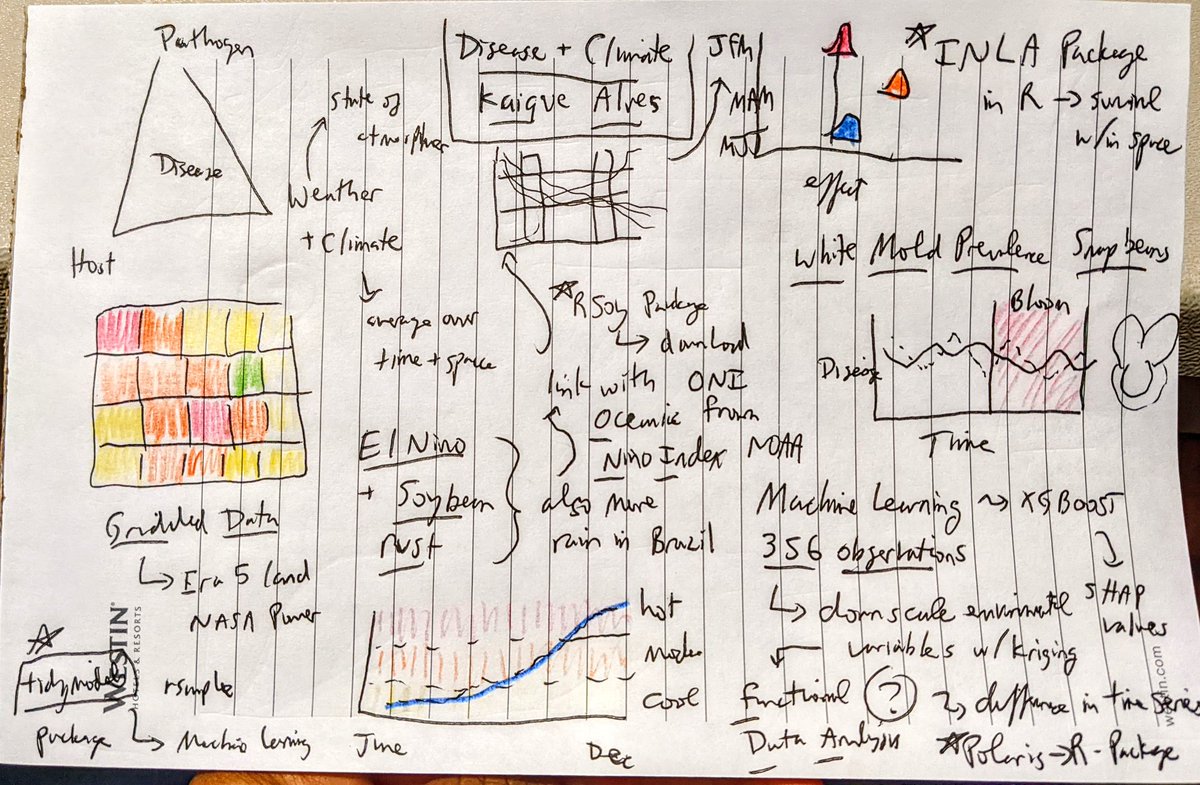 Pathogen
Disease
Host
state of
atmosphere
Weather
+ Climate
average over
time + space
Disease + Climate
Kaique Alves
JFM
MAM
MJJ
effect
☆ INLA Package
in R →
w/in space
White Mold Prevalence Snap beans
Bloom
Disease
Time
☆ R Soy Package
↳ download
link with ONI
Oceanic from
Nino Index NOAA
El Nino
+ Soybean
rust
also more
rain in Brazil
Gridded Data
↳ Era 5 land
NASA Power
☆
tidymodels
package
rsample
↳ Machine lerning
WESTIN®
HOTELS & RESORTS
hot
Moder
Cool
June
Dec
Machine Learning → XGBOOST
SHAP
values
356 observations
↳ down scale
variables w/ kriging
Functional
Data Analysis
?
↳ difference in time series
☆ Polaris → R-Package
westin.com